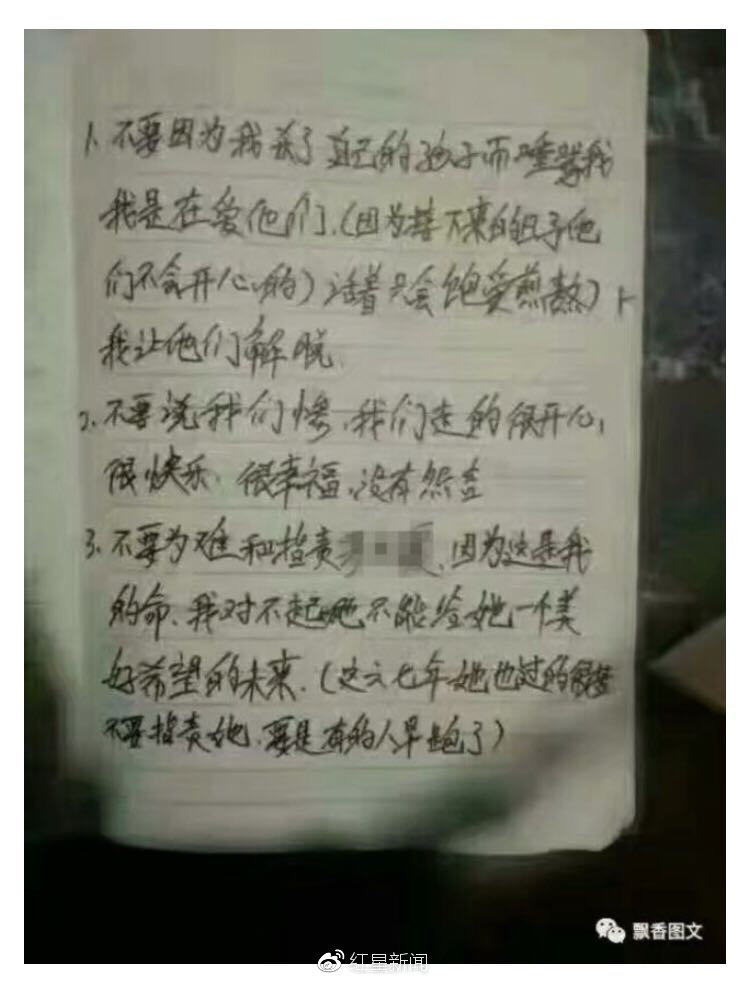 1、不要因为我杀了自己的孩子而唾骂我
我是在爱他们、(因为接下来的日子他
们不会开心的)活着只会饱受煎熬)
我让他们解脱.
2、不要说我们惨、我们走的很开心,
很快乐、很幸福、没有怨言
3、不要为难和指责、因为这是我
的命、我对不起她不能给她一个美
好希望的未来、(这六七年她也过的很
不要指责她、要是有的人早跑了)
飘香图文
红星新闻